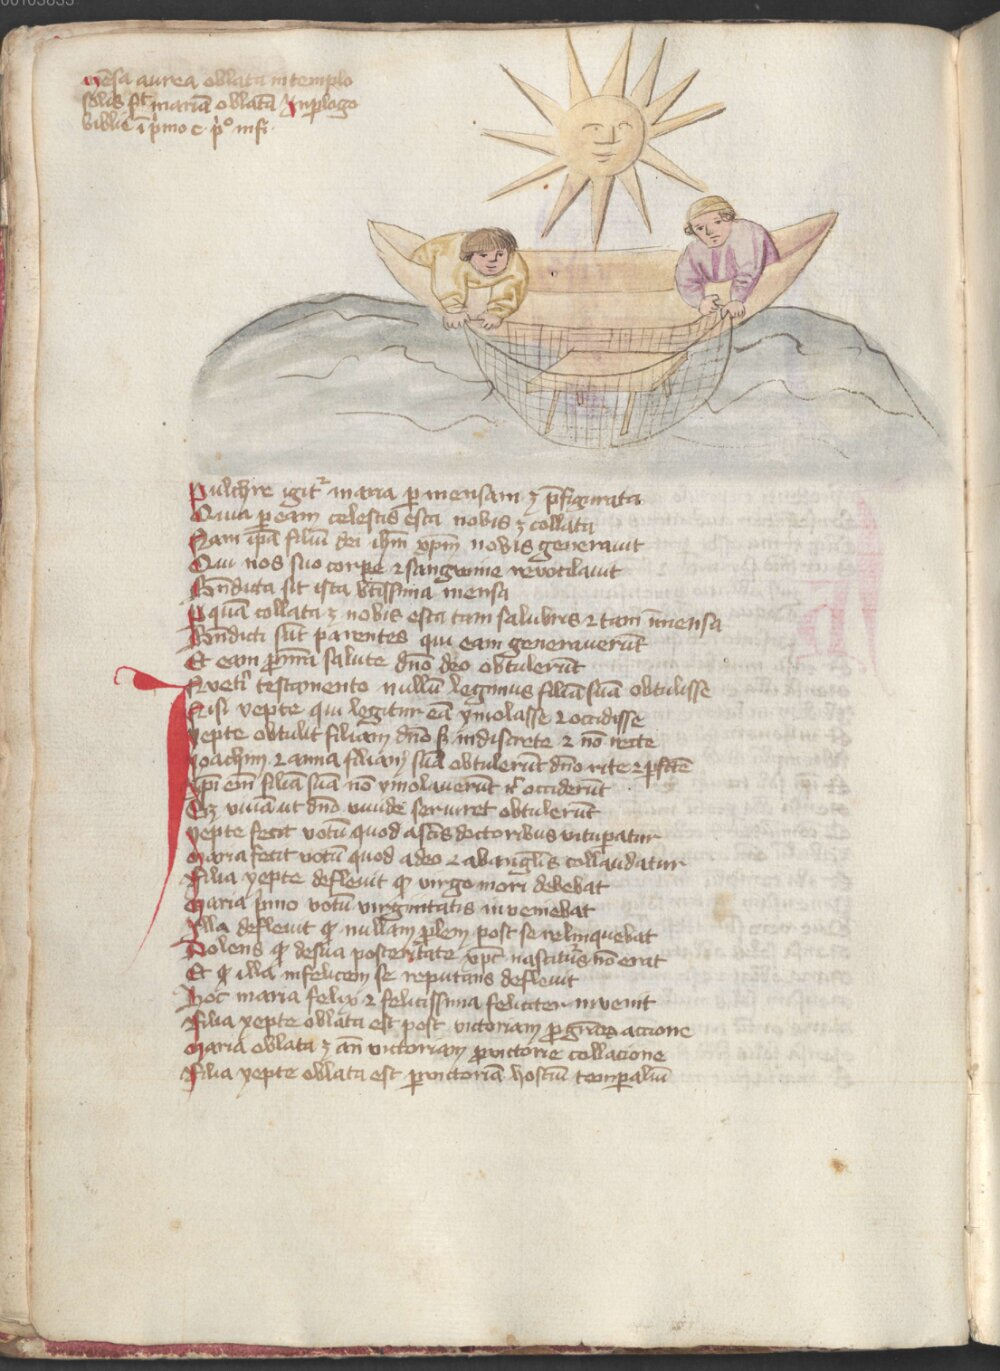 00103833
Mēsa aurea oblata in templo
solis sīt mariā oblatā In plogo
biblie ī pͥmo c. pͦ mͣſi
Pulchre igitᷣ maria p mensam ꝫ p̄figurata
Quia p eam celestis esca nobis ꝫ collata
Nam ip̄a filiū dei ihm̄ xp̄m nobis generauit
Qui nos suo corpe ⁊ sanguine refocilauit
Bn̄dicta sit ista btīssima mensa
P quā collata ꝫ nobis esca tam salubris ⁊ tam īmensa
Bn̄dicti sūt parentes qui eam generauerūt
Et eam p nr̄a salute dn̄o deo obtulerūt
In veti testamento nullū legimus filiā suā obtulisse
Nisi yepte qui legitur eā ymolasse ⁊ occidisse
Yepte obtulit filiam dn̄o sꝫ indiscrete ⁊ nō recte
Joachim ⁊ anna filiam suā obtulerūt dn̄o rite ⁊ pfcē
Ip̄i em̄ filiā suā nō ymolauerūt nͨ occiderūt
Sꝫ viuā ut dn̄o viuūde seruiret obtulerūt
Yepte fecit votū quod a scīs doctoribus vitupatur
Maria fecit votū quod a deo ⁊ ab anglis collaudatur
Filia yepte defleuit ꝙ virgo mori debebat
Maria pͥmo votū virginitatis inveniebat
Illa defleuit ꝙ nullam plem post se relinquebat
Dolens ꝙ de sua posteritate xpc̄ nasciturꝰ nō erat
Et ꝙ illa infelicem se reputans defleuit
Hoc maria felix ⁊ felicissima feliciter invenit
Filia yepte oblata est post victoriam p grāꝝ accione
Maria oblata ꝫ an̄ victoriam p victorie collacione
Filia yepte oblata est p victoriā hostiū temporaliū